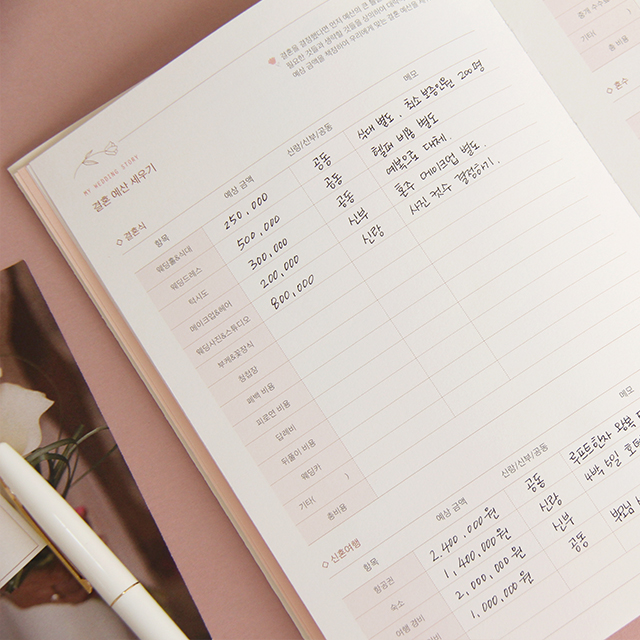 결혼을 결정했다면 먼저 예산의 큰 틀
필요한 것들과 생략할 것들을 상의하여 대략
예상 금액을 책정하여 우리에게 맞는 결혼 예산을
MY WEDDING STORY
결혼 예산 세우기
◇ 결혼식
항목 예상 금액 신랑/신부/공동 메모
웨딩홀&식대 250,000 공동 식대 별도. 최소 보증인원 200명
웨딩드레스 500,000 공동 헬퍼 비용 별도
턱시도 300,000 공동 예복으로 대체.
메이크업&헤어 200,000 신부 혼주 메이크업 별도
웨딩사진&스튜디오 800,000 신랑 사진 컷수 결정하기.
부케&꽃장식
청첩장
폐백 비용
피로연 비용
답례비
뒤풀이 비용
웨딩카
기타( )
총비용
◇ 신혼여행
항목 예상 금액 신랑/신부/공동
항공권 2,400,000원 공동 루프트한자 왕복
숙소 1,400,000원 신랑 4박 5일
여행 경비 2,000,000원 신부
1,000,000원 공동
중개 수수료
기타(
총 비용
◇ 혼수